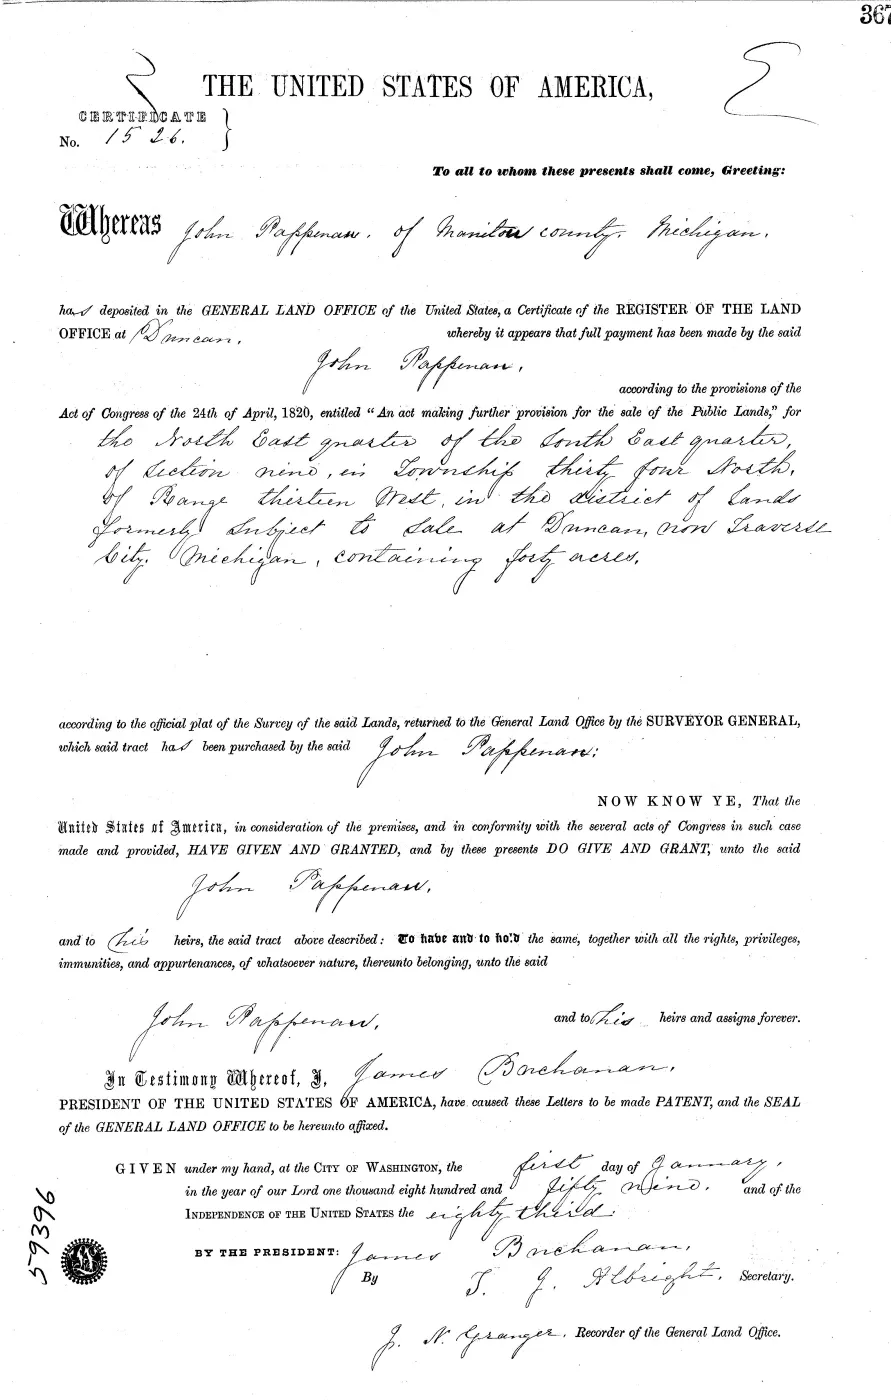 367
THE UNITED STATES OF AMERICA,
CERTIFICATE
No. 1526.
To all to whom these presents shall come, Greeting:
Whereas John Pappenau. of Manitou county. Michigan.
has deposited in the GENERAL LAND OFFICE of the United States, a Certificate of the REGISTER OF THE LAND
OFFICE at Duncan. whereby it appears that full payment has been made by the said
John Pappenau.
according to the provisions of the
Act of Congress of the 24th of April, 1820, entitled “An act making further provision for the sale of the Public Lands,” for
the North East quarter of the South East quarter,
of section nine, in Township thirty four North,
of Range thirteen West, in the district of Lands
formerly subject to Sale at Duncan, now Traverse
City. Michigan, containing forty acres.
according to the official plat of the Survey of the said Lands, returned to the General Land Office by the SURVEYOR GENERAL,
which said tract has been purchased by the said John Pappenau:
NOW KNOW YE, That the
United States of America, in consideration of the premises, and in conformity with the several acts of Congress in such case
made and provided, HAVE GIVEN AND GRANTED, and by these presents DO GIVE AND GRANT, unto the said
John Pappenau,
and to his heirs, the said tract above described: To have and to hold the same, together with all the rights, privileges,
immunities, and appurtenances, of whatsoever nature, thereunto belonging, unto the said
John Pappenau, and to his heirs and assigns forever.
In Testimony Whereof, I, James Buchanan,
PRESIDENT OF THE UNITED STATES OF AMERICA, have caused these Letters to be made PATENT, and the SEAL
of the GENERAL LAND OFFICE to be hereunto affixed.
GIVEN under my hand, at the CITY OF WASHINGTON, the first day of January,
in the year of our Lord one thousand eight hundred and fifty nine. and of the
INDEPENDENCE OF THE UNITED STATES the eighty third.
BY THE PRESIDENT: James Buchanan,
By T. J. Albright, Secretary.
J. N. Granger. Recorder of the General Land Office.
59396